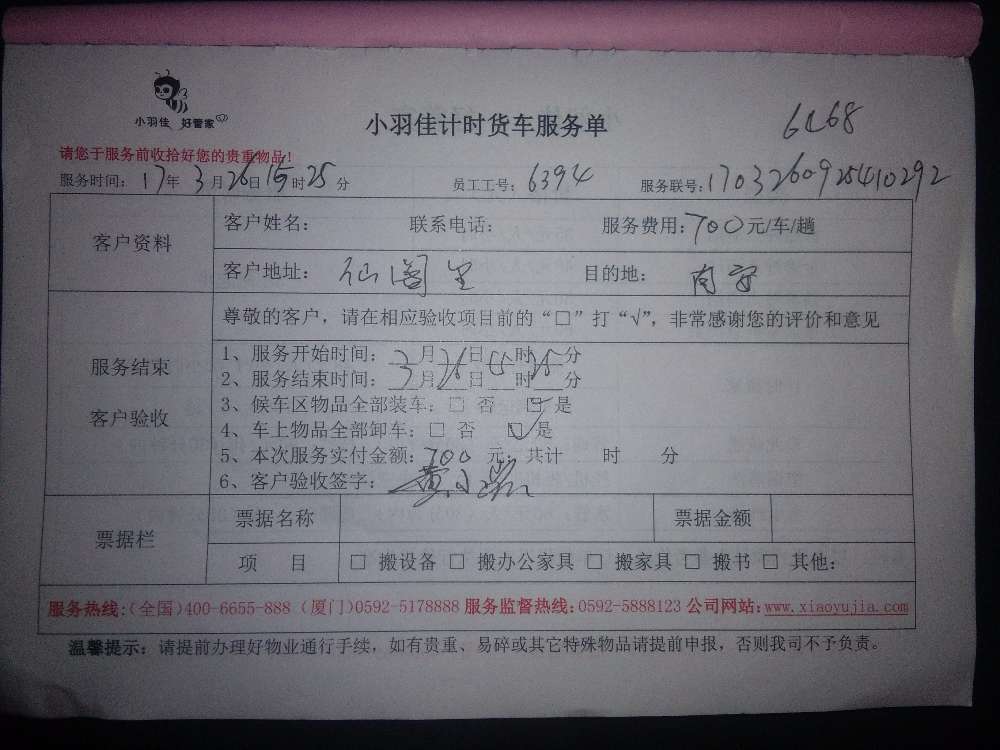 小羽佳 好管家
小羽佳计时货车服务单
6468
请您于服务前收拾好您的贵重物品！
服务时间：17年3月26日15时25分 员工工号：6394 服务联号：1703260925410292
客户资料
客户姓名： 联系电话： 服务费用：700元/车/趟
客户地址：仙阁里 目的地：南安
服务结束
客户验收
尊敬的客户，请在相应验收项目前的“□”打“√”，非常感谢您的评价和意见
1、服务开始时间：3月26日15时25分
2、服务结束时间：3月26日 时 分
3、候车区物品全部装车：□ 否 ☑ 是
4、车上物品全部卸车：□ 否 ☑ 是
5、本次服务实付金额：700 元；共计 时 分
6、客户验收签字：黄
票据栏
票据名称 票据金额
项 目 □ 搬设备 □ 搬办公家具 □ 搬家具 □ 搬书 □ 其他：
服务热线：(全国)400-6655-888 (厦门)0592-5178888 服务监督热线：0592-5888123 公司网站：www.xiaoyujia.com
温馨提示：请提前办理好物业通行手续，如有贵重、易碎或其它特殊物品请提前申报，否则我司不予负责。